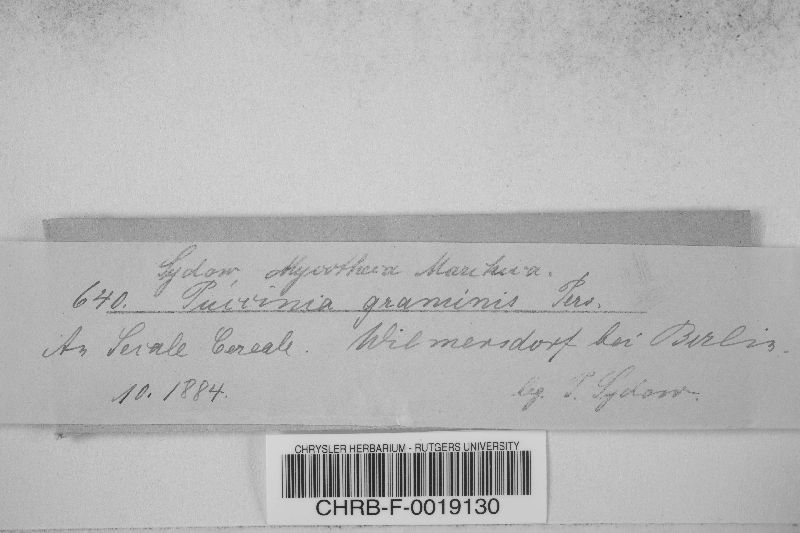 Sydow Mycotheca Marchica.
640. Puccinia graminis Pers.
An Secale Cereale. Wilmersdorf bei Berlin.
10. 1884. leg. P. Sydow.
CHRYSLER HERBARIUM - RUTGERS UNIVERSITY
CHRB-F-0019130